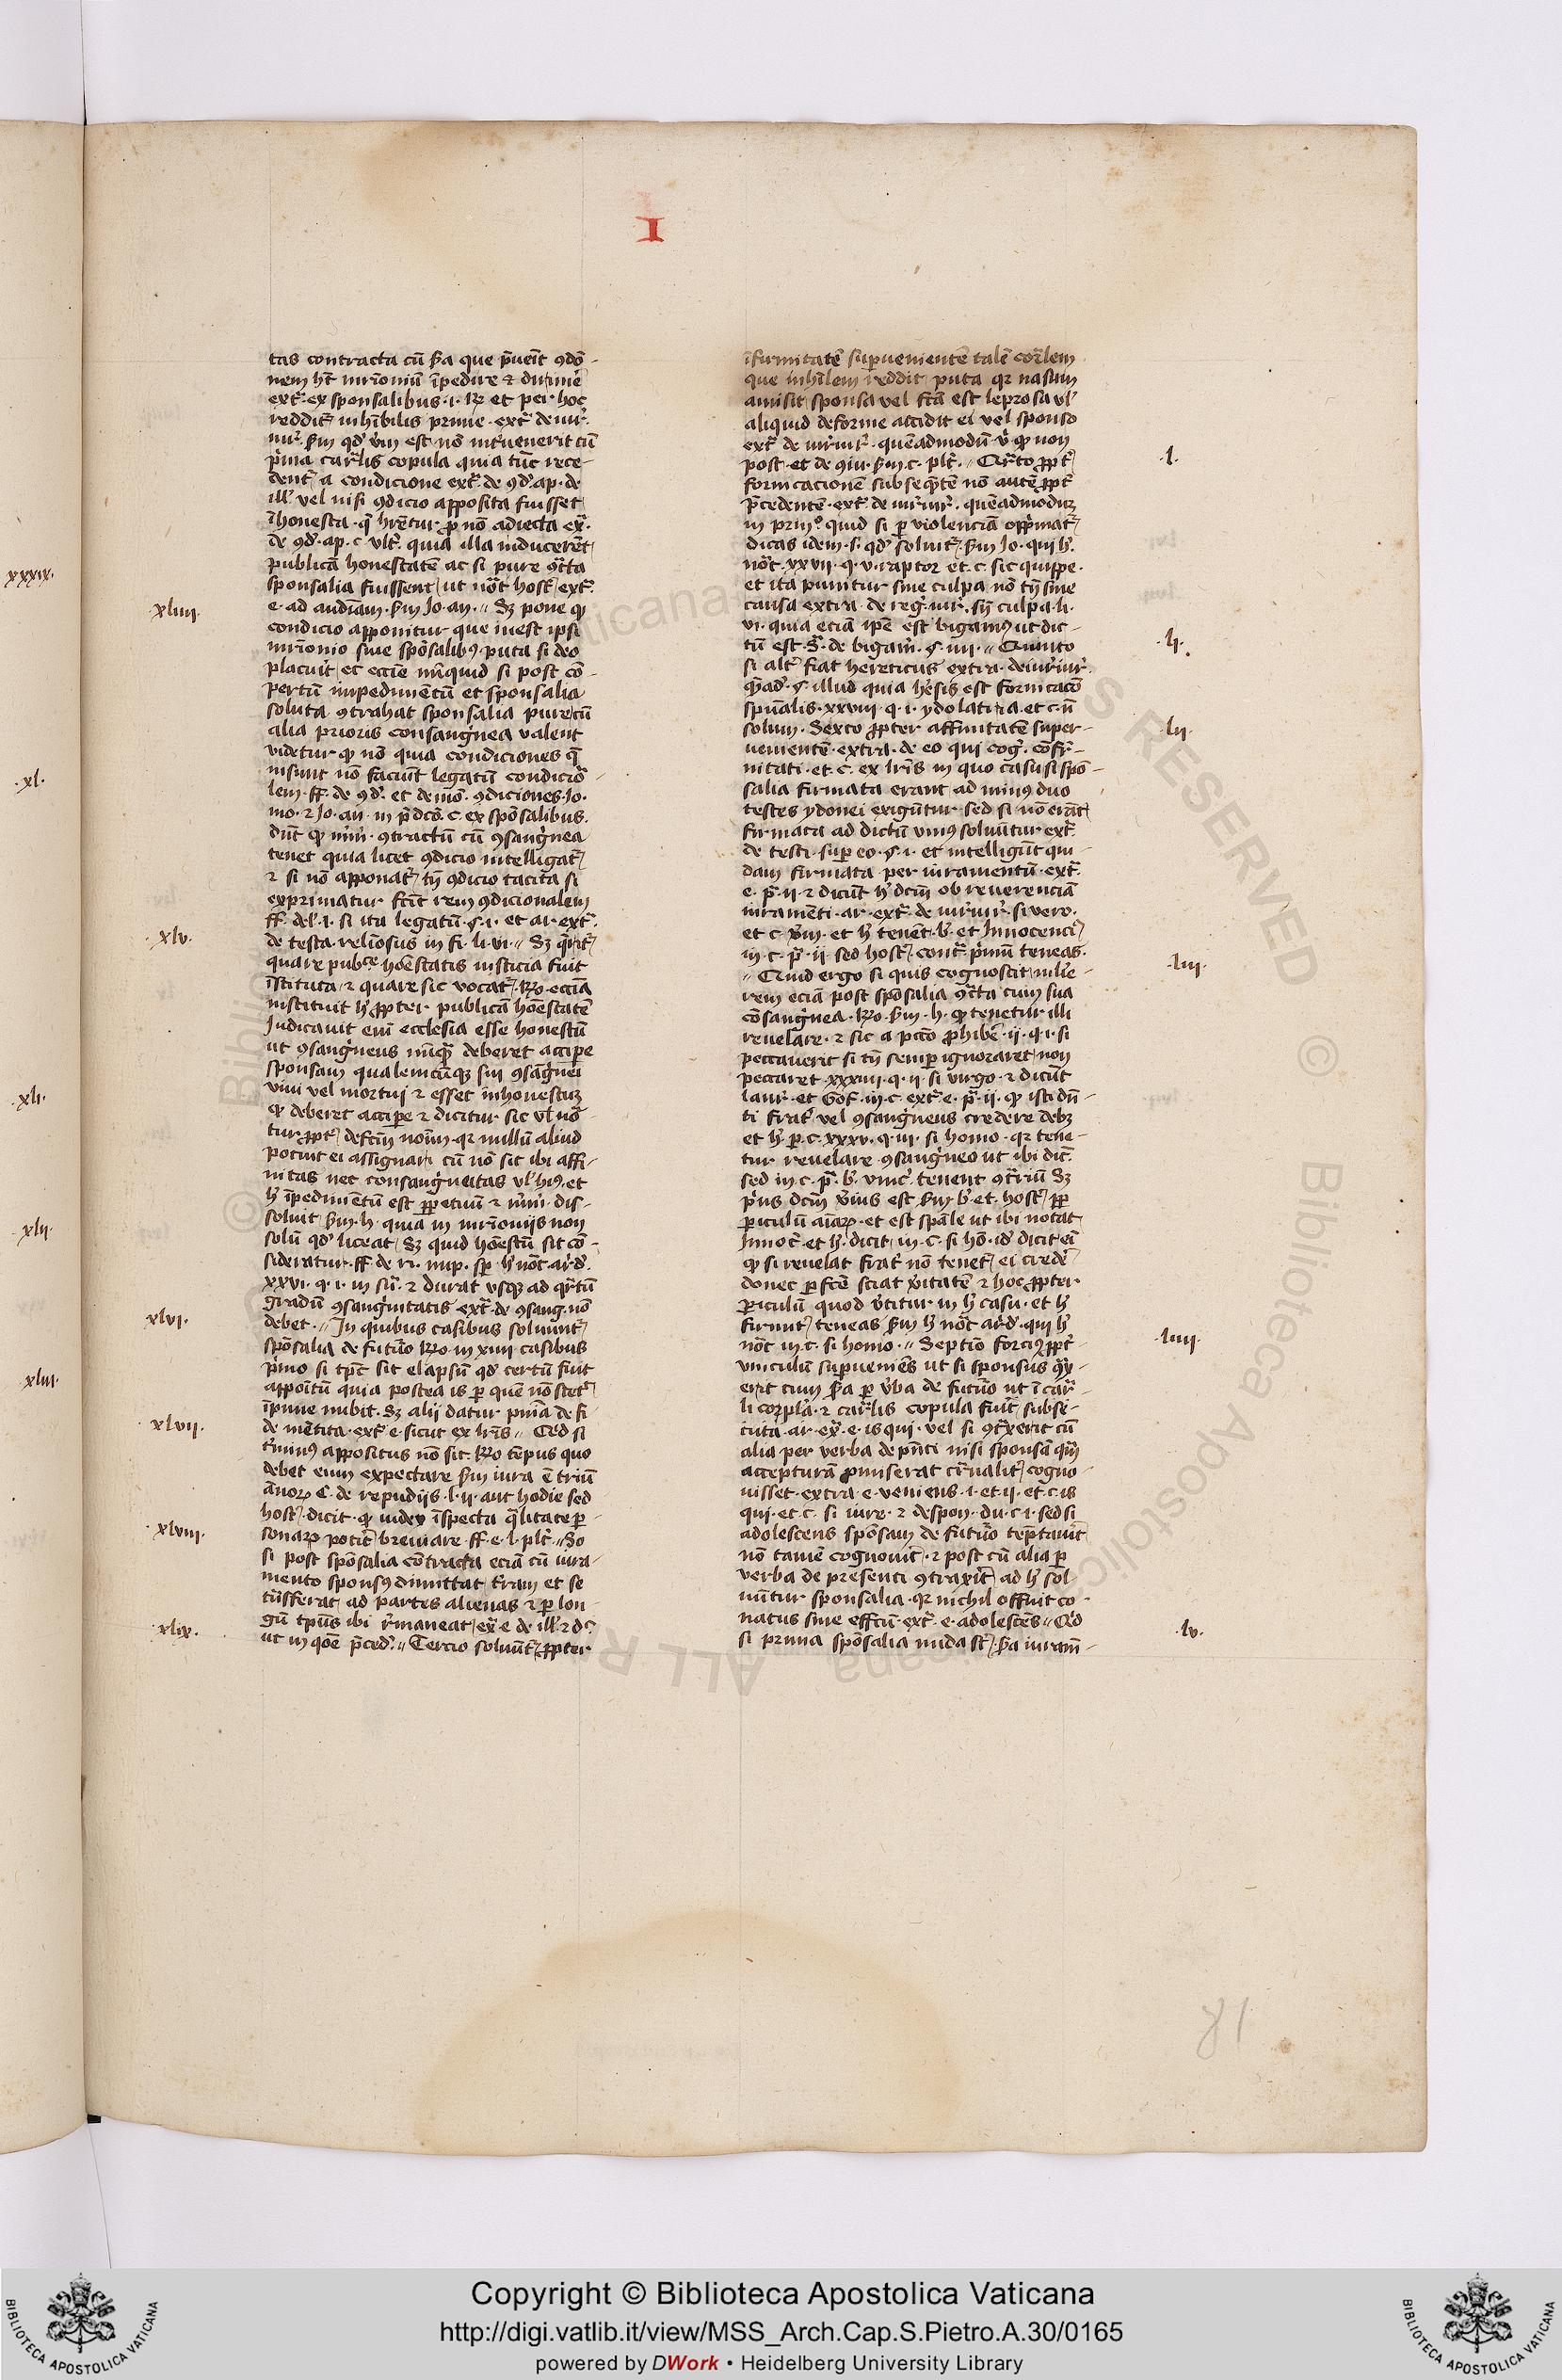 I
tas contracta cū s̄a que p̄ueīt ꝯdō-
nem hīt mr̄ionīu īpedire ⁊ dirimē
ext̄. ex sponsalibus .i. R̄ et per hoc
reddit̄ inhībilis prime . ext̄ de iur̄.
p̄ma carl̄is copula quia tūc rece-
dent̄ a condicione ext̄ de ꝯd̓. ap. de
ill̓ vel nisi ꝯdicio apposita fuisset
īhonesta . q̄ hr̄etur ꝓ nō adiecta ex̄.
de ꝯd̓. ap. c. vlt̄. quia illa inducerēt
publicā honestatē ac si pure ꝯt̄cta
sponsalia fuissent ut nōt host̄ ext̄.
e. ad audīam . s̄m Jo. an. Sꝫ pone ꝙ
condicio apponitur que inest ipsi
mr̄ionio siue spōsalibꝰ . puta si deo
placuit et ecc̄ie nūquid si post cō-
pertū impedimētū et sponsalia
soluta ꝯtrahat sponsalia pure cū
alia prioris consang̓nea valent
videtur ꝙ nō quia condiciones q̄
insunt nō faciūt legatū condicio-
lem . ff. de ꝯd̓. et demō. ꝯdiciones . Jo.
mo. ⁊ Jo. an. in p̄dcō. c. ex spōsalibus.
dūt ꝙ mr̄i. ꝯtractū cū ꝯsang̓nea
tenet quia licet ꝯdicio intelligat̄
⁊ si nō apponat̄ tn̄ ꝯdicio tacita si
exprimatur fcīt rem ꝯdicionalem
ff. de l̓. i. si ita legatū . §. i. et ar. ext̄.
de testa. reliōsus in fi. li. vi. Sꝫ q̄rit̄
quare pubᶜᵉ hōestatis iusticia fuit
īstituta ⁊ quare sic vocat̄ . R̄o. ecc̄ia
instituit h̓ ꝓpter publicā hōestatē
Judicauit eni ecclesia esse honestū
ut ꝯsang̓neus nūqᷓ deberet accipe
sponsam qualemcūqꝫ sui ꝯsāg̓nei
viui vel mortui ⁊ esset inhonestuꝫ
ꝙ deberet accipe ⁊ dicitur sic vl̓ nō-
tur ꝓpt̄ defcm̄ noīm . qꝛ nullū aliud
potuit ei assignari cū nō sit ibi affi-
nitas nec consang̓neitas vl̓ hꝰ. et
h̓ īpedimētū est ꝑpetuū ⁊ mr̄i. dis-
soluit s̄m h. quia in mr̄ionijs non
solū qd̓ liceat sꝫ quid hōestū sit cō-
sideratur . ff. de ri. nup. sp̄ h̓ nōt ard̓.
xxvi. q. i. in sū. ⁊ durat vsqꝫ ad qr̄tū
gradū ꝯsang̓nitatis ext̄. de ꝯsang. nō
debet . In quibus casibus soluunt̄
spōsalia de futuō R̄o. in xiiii casibus
p̄mo si tp̄c sit elapsū qd̓ certū fuit
appoītū quia postea is ꝑ quē nō stet̄
īpune nubit . Sꝫ alij datur pn̄ia de fi-
de mētita . ext̄ e. sicut ex lr̄is . Qd̓ si
t̄minꝰ appositus nō sit . R̄o. tēpus quo
debet eum expectare s̄m iura ē triū
ānoꝝ C. de repudijs . l. ii. aut hodie sed
host̄. dicit . ꝙ iudex īspecta q̄litate ꝑ-
sonaꝝ potit̄ breuiare . ff. e. l. plt̄. Sō
si post spōsalia cōtracta eciā cū iura-
mento sponsꝰ dimittat t̄ram et se
tn̄sferat ad partes alienas ⁊ ꝑ lon-
gū tpūs ibi r̄maneat ex̄ e. de ill̓. ⁊ dᵒ
ut in qōe p̄ced̓. Tercio soluūt̄ ꝓpter
īfirmitatē suꝑuenientē talē cor̄lem
que inhīlem reddit puta qꝛ nasum
amisit sponsa vel fcā est leprosa vl̓
aliquid deforme accidit ei vel sponso
ext̄ de iur̄iur̄ . quēadmodū ꝟ. ꝙ non
post . et de ꝯiu. s̄m . c. plt̄. Qr̄to ꝓpt̄
fornicacionē subseq̄tē nō autē ꝓpt̄
p̄cedentē . ext̄. de iur̄iur̄. quēadmoduꝫ
in prīnº. quid si ꝑ violenciā opp̄mat̄
dicas idem s. qd̓ soluit̄ s̄m Jo. qui h̓.
nōt xxvii. q. v. raptor et. c. sic quippe.
et ita punitur sine culpa nō tn̄ sine
causa extra de reg̓ iur̄. sn̄ culpa . li.
vi. quia eciā ipē est bigamꝰ ut dic-
tū est . s̄. de bigam̄. §. iiii. Quinto
si alt̄ fiat hereticus extra. de iur̄iur̄
qᷓad̓. §. illud quia h̓esis est fornicacō
spūalis . xxviii. q. i. ydolatria . et. c. nō
solum . Sexto ꝓpter affinitatē super-
uenientē . extra . de eo qui cog̓. cōsr̄-
nitati . et. c. ex lr̄is in quo casu si spō-
salia firmata erant ad minꝰ duo
testes ydonei exigūtur sed si nō erāt
firmata ad dictū vniꝰ soluūtur ext̄.
de testi . suꝑ eo. §. i. et intelligūt qui-
dam firmata per iuramentū . ext̄.
e. p̄. ii. ⁊ dicūt h̓ dcm̄ ob reuerenciā
iuramēti . ar. ext̄. de iur̄iur̄. si vero.
et c. s̄m. et h̓ tenēt . b̓. et Innocenci̓
in c. p̄. ii. sed host̄. cont̄ p̄mū teneas.
Quid ergo si quis cognoscit mlīe-
rem eciā post spōsalia ꝯt̄cta cum sua
cōsang̓nea . R̄o. s̄m . h. ꝙ tenetur illi
reuelare . ⁊ sic a pccō ꝓhibe . ii. q. i. si
peccauerit si tn̄ semꝑ ignoraret non
peccaret . xxxiiii. q. ii. si virgo . ⁊ dicūt
laur̄. et Gof. in c. ext̄ e. p̄. ii. ꝙ isti dn̄-
ti frat̄ vel ꝯsang̓neus credere debꝫ
et h̓ ꝑ. c. xxxv. q. vi. si homo . qꝛ tene-
tur reuelare ꝯsang̓neo ut ibi dic̄.
sed in c. p̄. b̓. vinc̓. tenent ꝯt̄riū Sꝫ
p̄us dcm̄ ꝟius est s̄m b̓. et. host̄ ꝓp̄
ꝑiculū aīaꝝ . et est spāle ut ibi notat
Innoc̄. et h̓. dicit in. c. si hō. id̓ dicit eī
ꝙ si reuelat frat̓ nō tenet̄ ei credē
donec ꝑfcē sciat ꝟitatē ⁊ hoc ꝓpter
ꝑiculū quod ꝟtitur in h̓ casu . et h̓
firmit̄ teneas s̄m h̓ nōt ard̓. qui h̓
nōt in c. si homo . Septīo forciꝰ ꝓpt̄
vinculū suꝑueniēs ut si sponsus
erit cum s̄a ꝑ ꝟba de futuō ut ī car̄-
li corpl̓a . ⁊ carl̄is copula fuit subse-
cuta . ar. ex̄. e. is qui . vel si ꝯt̄xerit cū
alia per verba de pn̄ti nisi sponsā qm̄
accepturā ꝓmiserat cr̄nalit̄ cogno-
uisset . extra . e. veniens . i. et. ii. et. c. is
qui . et. c. si iure . ⁊ despon. du. c. i. sed si
adolescens spōsam de futuō tēptauit
nō tamē cognouit . ⁊ post cū alia ꝑ
verba de presenti ꝯtraxit ad h̓ sol-
uūtur sponsalia . qꝛ nichil offuit co-
natus sine effcū . ext̄. e. adolescēs . Qd̓
si prima spōsalia nuda st̄ . s̄a iuram̄-
xxxix.
.xl.
.xli.
.xlii.
.xliii.
.xliiii.
.xlv.
.xlvi.
.xlvii.
.xlviii.
.xlix.
.l.
.li.
.lii.
.liii.
.liiii.
.lv.
Copyright © Biblioteca Apostolica Vaticana
http://digi.vatlib.it/view/MSS_Arch.Cap.S.Pietro.A.30/0165
powered by DWork • Heidelberg University Library
BIBLIOTECA APOSTOLICA VATICANA
BIBLIOTECA APOSTOLICA VATICANA